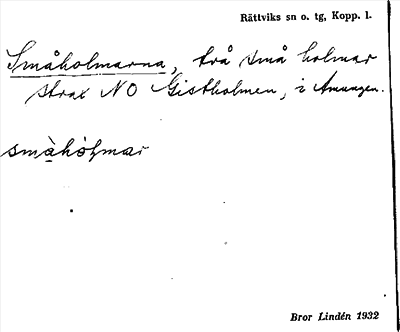 Rättviks sn o. tg, Kopp. l.
Småholmarna, två små holmar
strax NO Gistholmen, i Amungen.
småhòlmar
Bror Lindén 1932